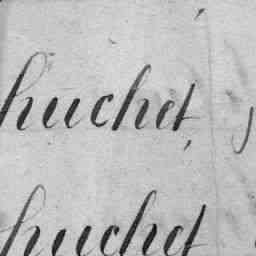 huchet,
huchet